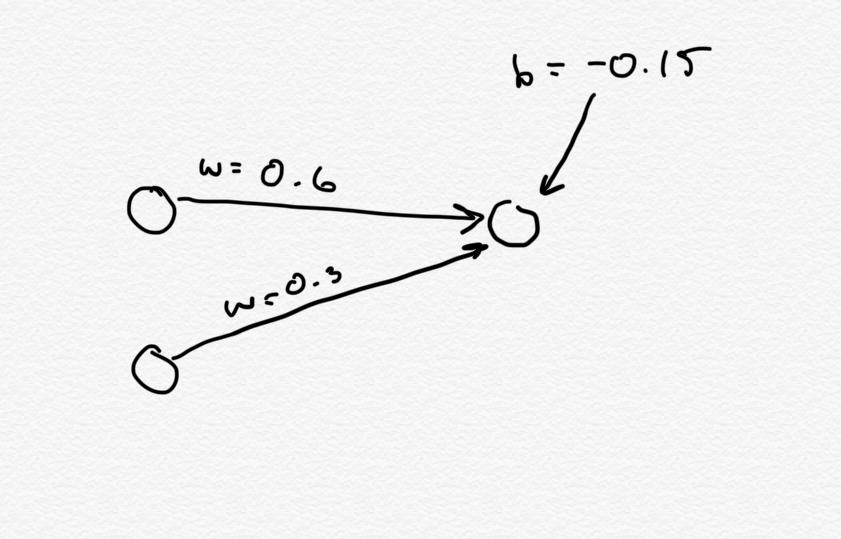 b = -0.15
w = 0.6
w = 0.3